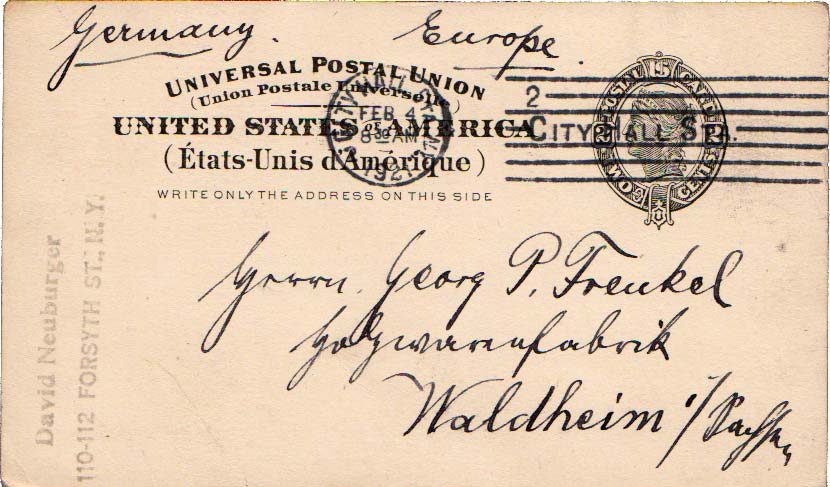 Germany. Europe.
UNIVERSAL POSTAL UNION
(Union Postale Universelle)
UNITED STATES OF AMERICA
(États-Unis d'Amérique)
WRITE ONLY THE ADDRESS ON THIS SIDE
CITY HALL STA.
FEB 4
8 30 AM
192
2
CITY HALL STA.
POSTAL CARD
2 2
TWO CENTS
Herrn. Georg P. Frenkel
Holzwarenfabrik
Waldheim i/Sachsen
David Neuburger
110-112 FORSYTH ST., N.Y.